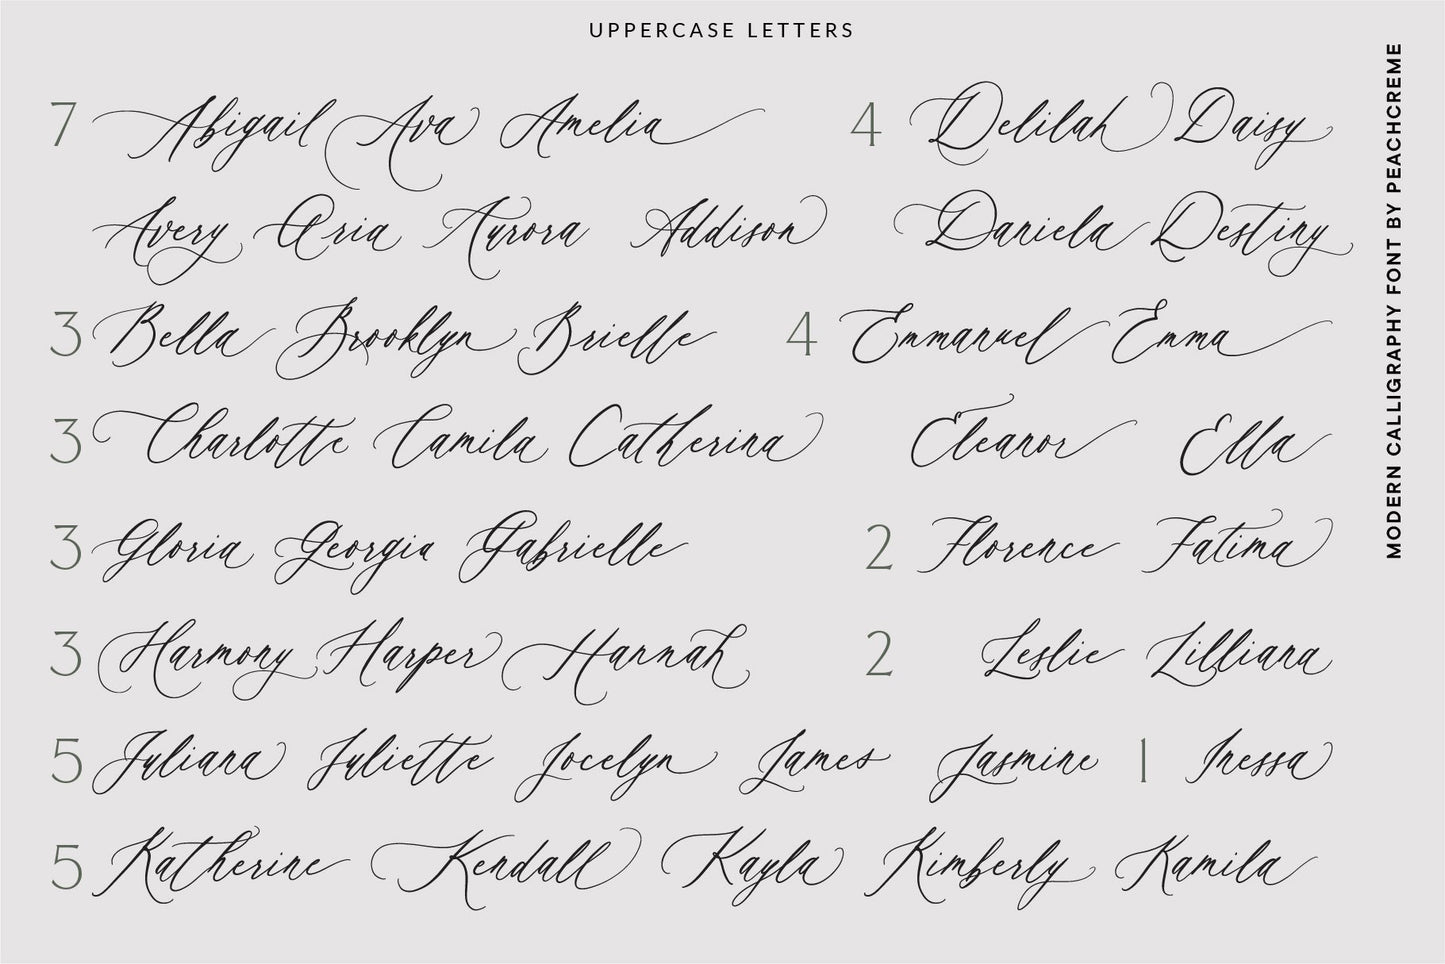 UPPERCASE LETTERS
7 Abigail Ava Amelia
Avery Aria Aurora Addison
3 Bella Brooklyn Brielle
3 Charlotte Camila Catherina
3 Gloria Georgia Gabrielle
3 Harmony Harper Hannah
5 Juliana Juliette Jocelyn James Jasmine
5 Katherine Kendall Kayla Kimberly Kamila
4 Delilah Daisy
Daniela Destiny
4 Emmanuel Emma
Eleanor Ella
2 Florence Fatima
2 Leslie Lilliana
1 Inessa
MODERN CALLIGRAPHY FONT BY PEACHCREME